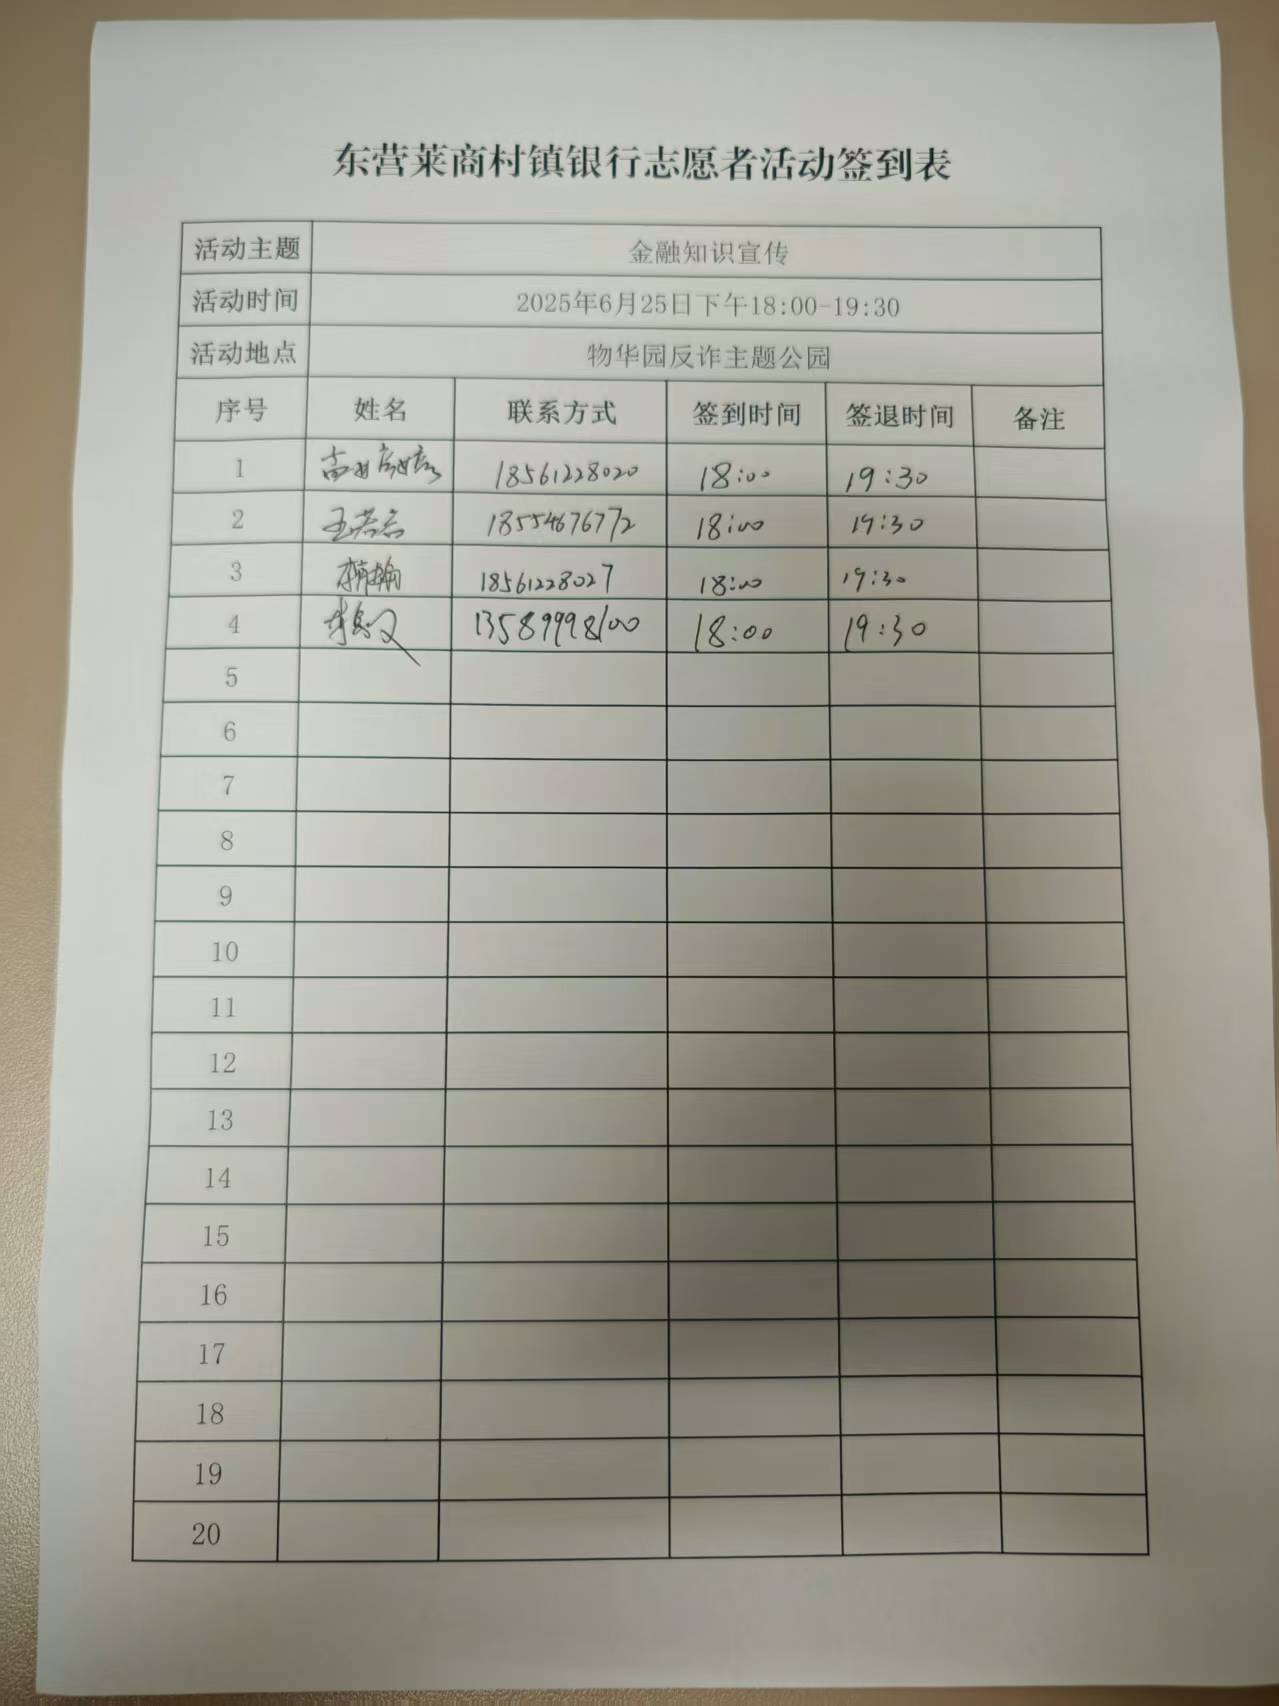 东营莱商村镇银行志愿者活动签到表
活动主题 金融知识宣传
活动时间 2025年6月25日下午18:00-19:30
活动地点 物华园反诈主题公园
序号 姓名 联系方式 签到时间 签退时间 备注
1 18561228020 18:00 19:30
2 18554676772 18:00 19:30
3 18561228027 18:00 19:30
4 13589998100 18:00 19:30
5
6
7
8
9
10
11
12
13
14
15
16
17
18
19
20